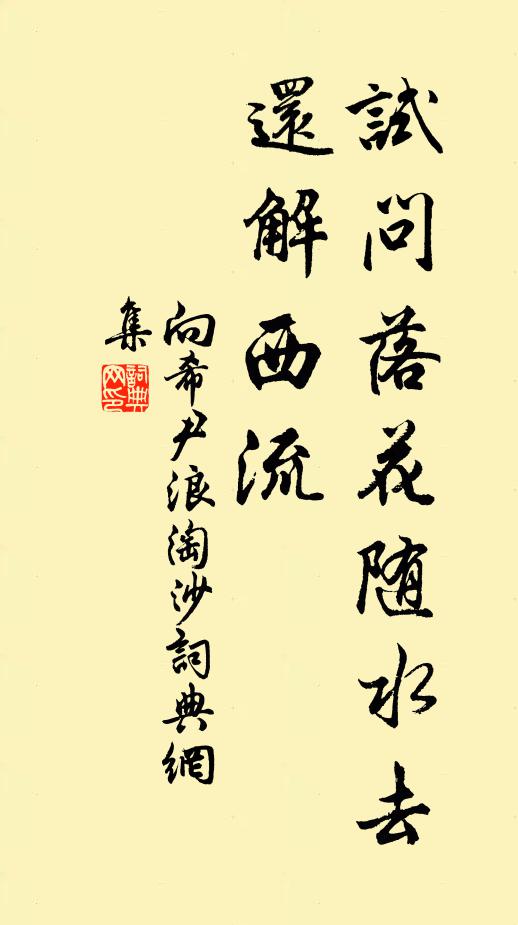 試問落花随水去
還解西流
向希尹浪淘沙詞典網
集
詞典网印